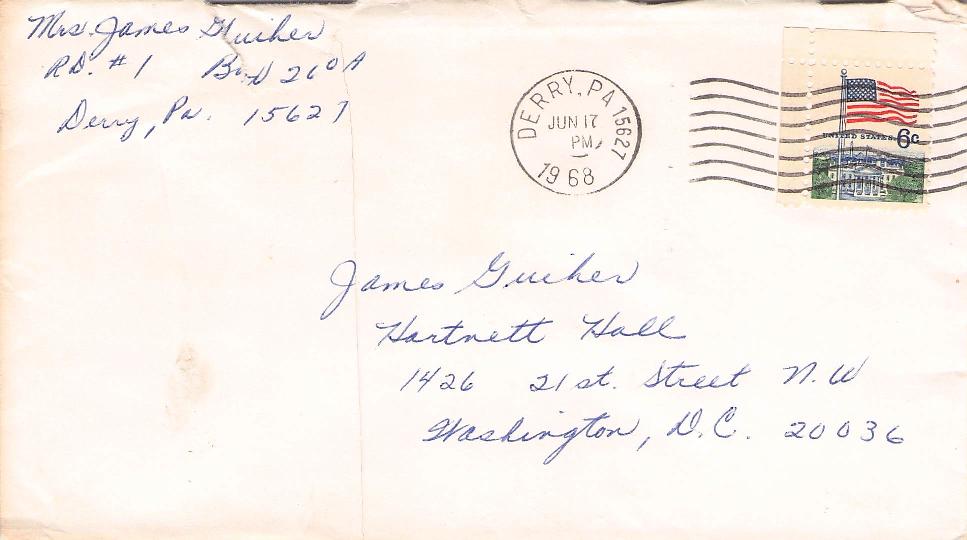 Mrs. James Guiher
RD. #1 Box 260A
Derry, Pa. 15627
DERRY, PA 15627
JUN 17
PM
1968
UNITED STATES 6c
James Guiher
Hartnett Hall
1426 21st. Street N.W
Washington, D.C. 20036